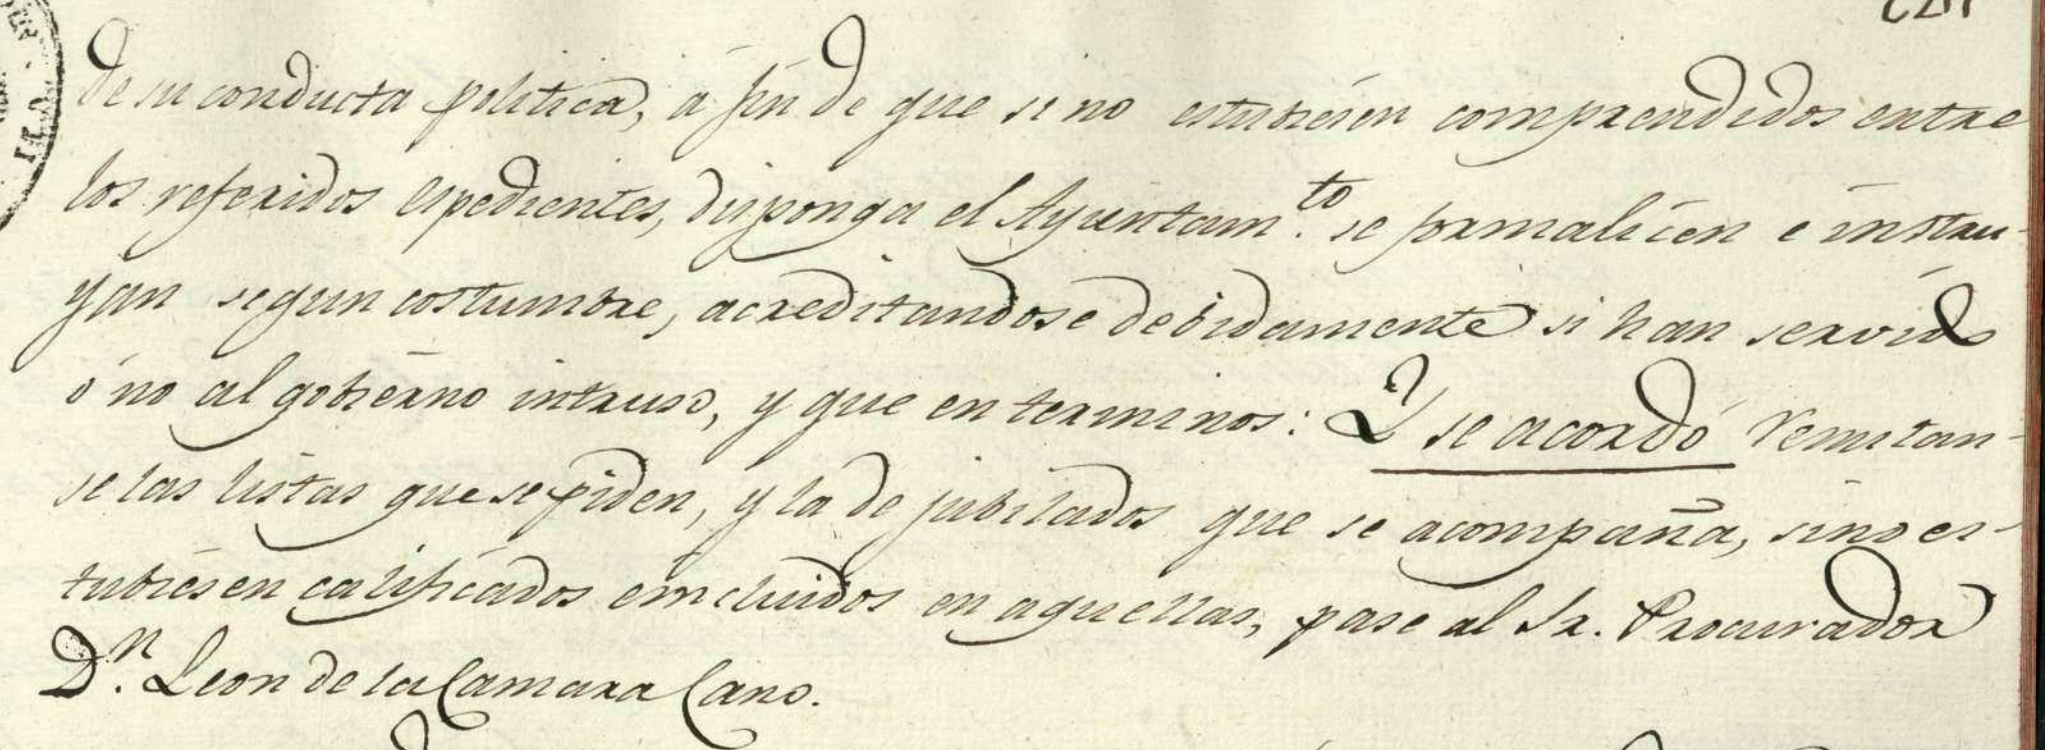 de su conducta politica, á fin de que si no estubiesen comprendidos entre
los referidos espedientes, disponga el Ayuntam.to se formalicen e instru-
yan segun costumbre, acreditandose debidamente si han servido
ó no al gobierno intruso, y que en terminos: Y se acordó remitan-
se las listas que se piden, y la de jubilados que se acompaña, sino es-
tubiesen calificados e incluidos en aquellas, pase al Sr. Procurador
D.n Leon de la Camara Cano.